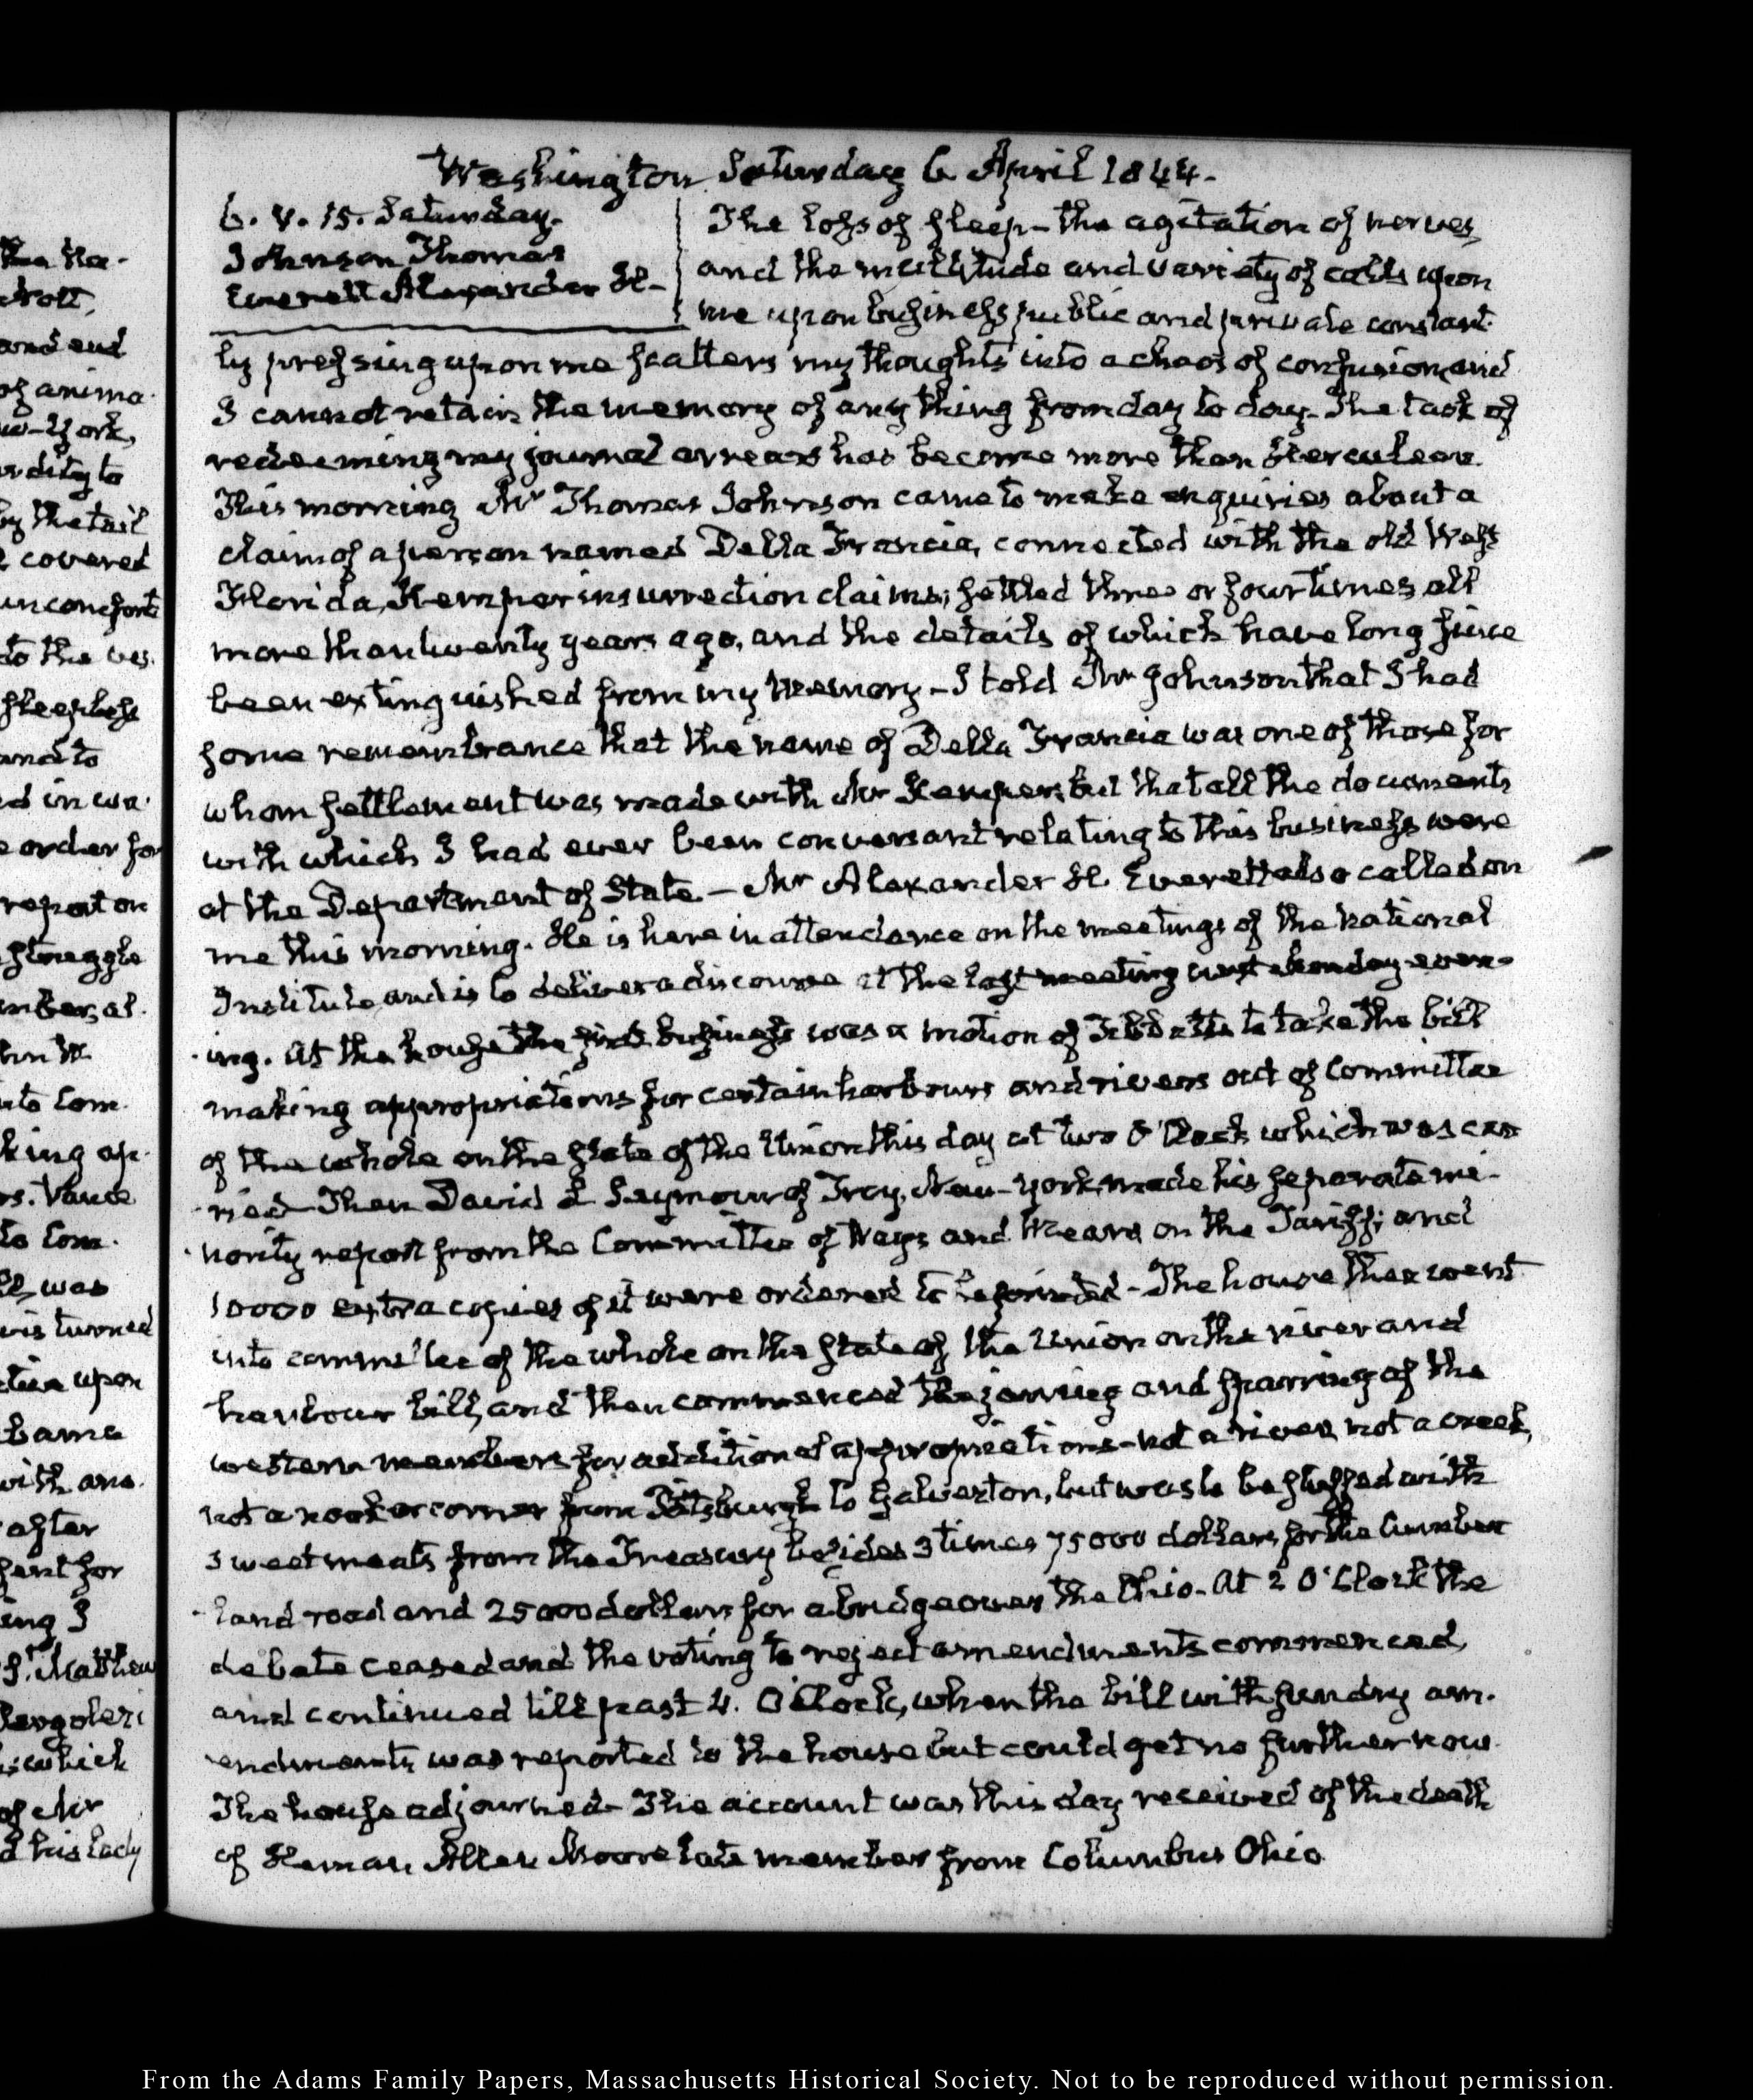 Washington Saturday 6 April 1844.
6. V. 15. Saturday.
Johnson Thomas
Everett Alexander H.
The loss of sleep – the agitation of nerves,
and the multitude and variety of calls upon
me upon business public and private constant-
ly pressing upon me scatters my thoughts into a chaos of confusion, and
I cannot retain the memory of any thing from day to day. The task of
redeeming my journal arrears has become more than Herculean.
This morning Mr Thomas Johnson came to make enquiries about a
claim of a person named Della Francia, connected with the old West
Florida, Kemper insurrection claims; settled three or four times all
more than twenty years ago, and the details of which have long since
been extinguished from my memory – I told Mr Johnson that I had
some remembrance that the name of Della Francia was one of those for
whom settlement was made with Mr Kemper; but that all the documents
with which I had ever been conversant relating to this business were
at the Department of State. – Mr Alexander H. Everett also called on
me this morning. He is here in attendance on the meetings of the National
Institute, and is to deliver a discourse at the last meeting next Monday even-
ing. At the house the first business was a motion of Tibbatts to take the bill
making appropriations for certain harbours and rivers out of Committee
of the whole on the State of the Union this day at two O'Clock which was car-
ried Then David L Seymour of Troy, New-York, made his separate mi-
nority report from the Committee of Ways and Means on the Tariff; and
10000 extra copies of it were ordered to be printed – The house then went
into committee of the whole on the state of the Union on the river and
harbour bill, and then commenced the jarring and sparring of the
western members for additional appropriations – not a river, not a creek,
not a nook or corner from Pittsburgh to Galveston, but was to be stuffed with
sweetmeats from the Treasury besides 3 times 75000 dollars for the Cumber
land road and 25000 dollars for a bridge over the Ohio. At 2 O'Clock the
debate ceased and the voting to reject amendments commenced,
and continued till past 4. O'Clock, when the bill with sundry am-
endments was reported to the house but could get no further now.
The house adjourned – The account was this day received of the death
of Heman Allen Moore late member from Columbus Ohio
From the Adams Family Papers, Massachusetts Historical Society. Not to be reproduced without permission.